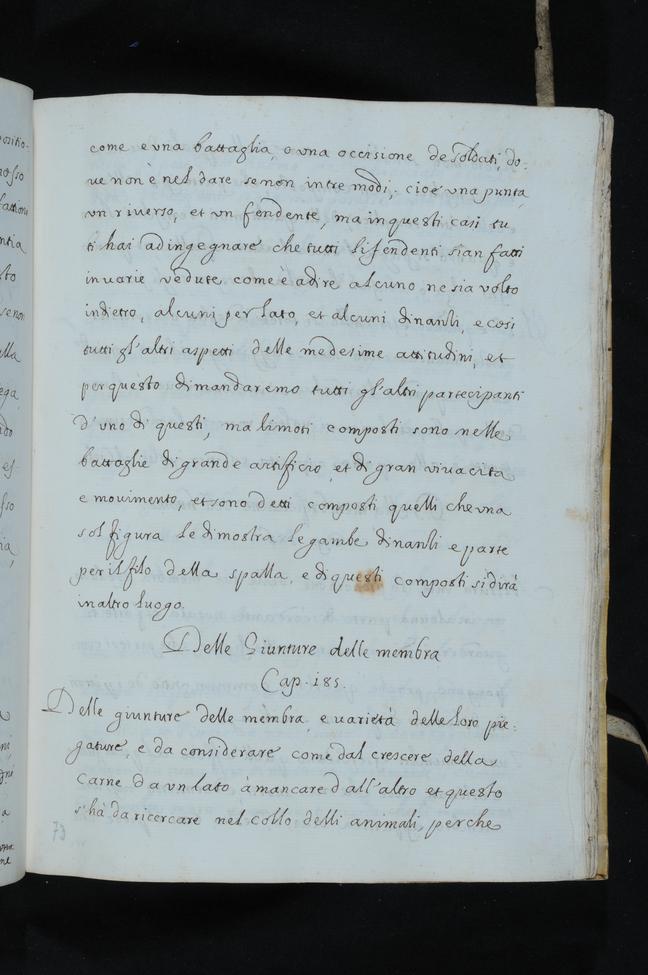 come e una battaglia, o una occisione de Soldati, do-
ue non è nel dare se non in tre modi, cioè una punta,
un riuerso, et un fendente, ma in questi casi tu
ti hai ad ingegnare che tutti li fendenti sian fatti
in uarie vedute come è a dire alcuno ne sia volto
indietro, alcuni per lato, et alcuni dinanzi, e cosi
tutti gl'altri aspetti delle medesime attitudini, et
per questo dimandaremo tutti gl'altri partecipanti
d'uno di questi, ma li moti composti sono nelle
battaglie di grande artificio, et di gran viuacita
e movimento, et sono detti composti quelli che una
sol figura le dimostra le gambe dinanzi e parte
per il filo della spalla, e di questi composti si dirà
in altro luogo.
Delle Giunture delle membra
Cap. 185.
Delle giunture delle membra, e varietà delle loro pie-
gature, e da considerare come dal crescere della
carne da un lato, à mancare dall'altro et questo
s'hà da ricercare nel collo delli animali, perche
73
ositio-